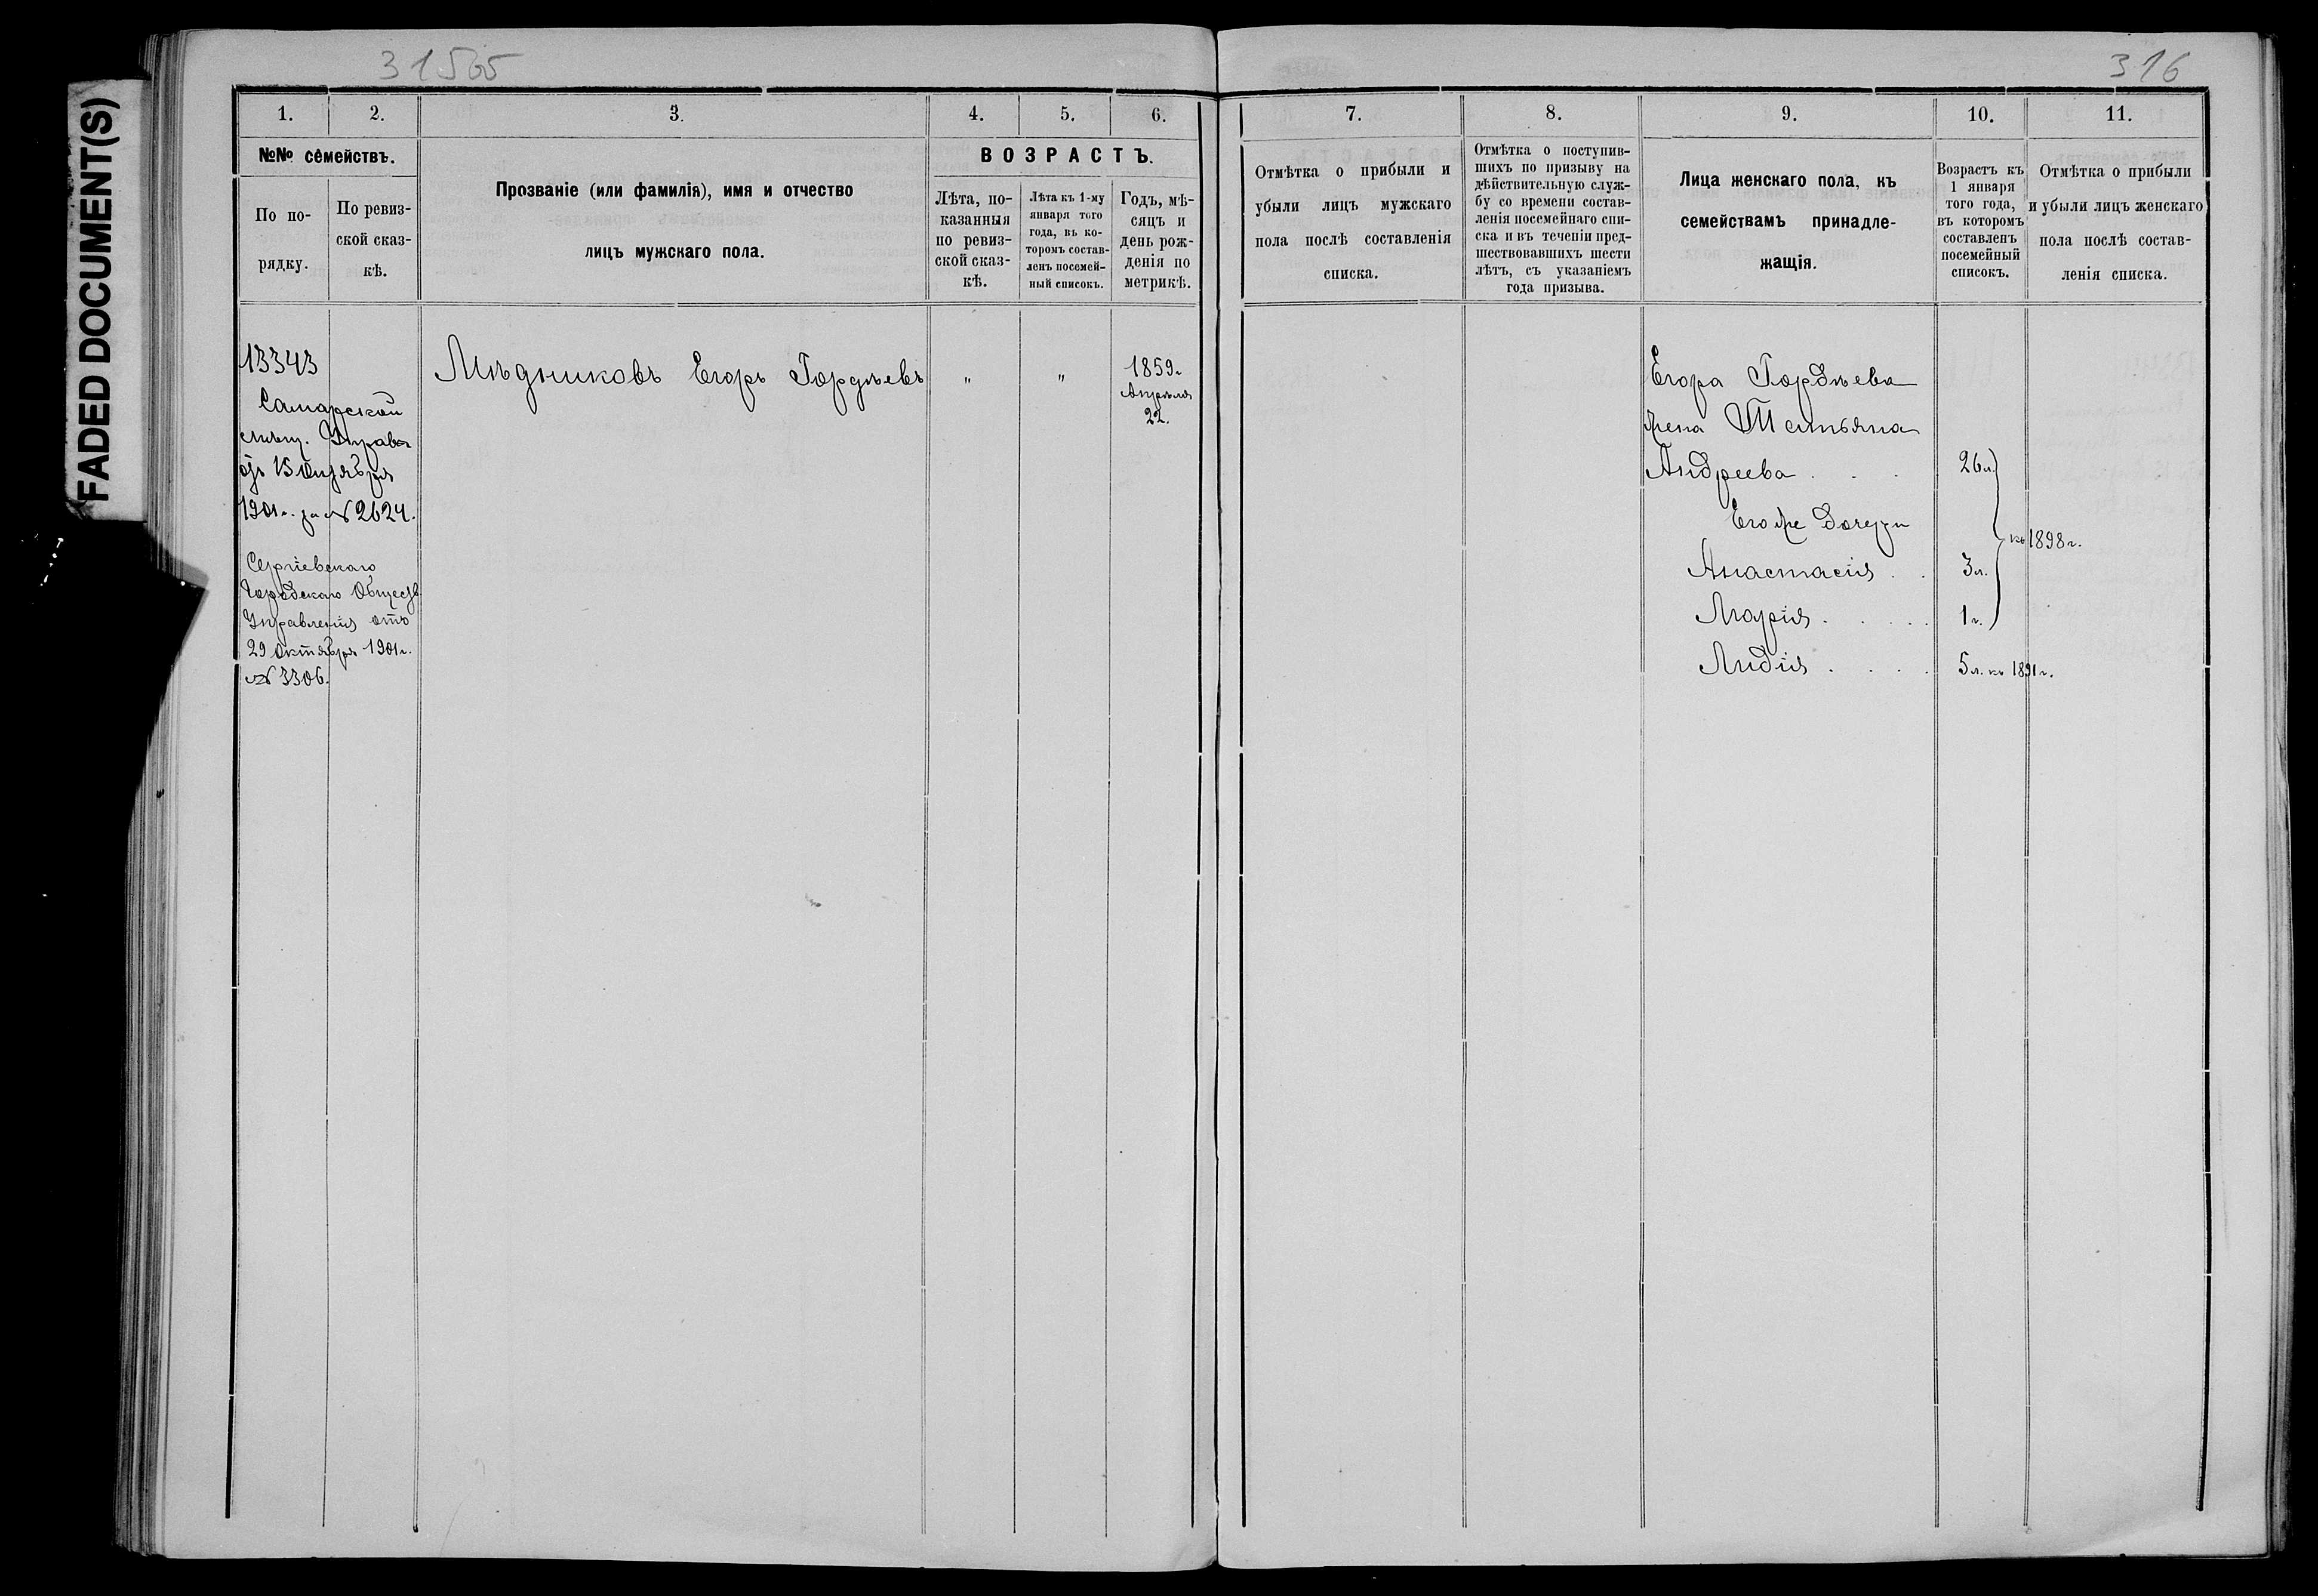 FADED DOCUMENT(S)
315об
1. 2. 3. 4. 5. 6.
№№ семействъ.
По по-
рядку.
По ревиз-
ской сказ-
кѣ.
Прозваніе (или фамилія), имя и отчество
лицъ мужскаго пола.
ВОЗРАСТЪ.
Лѣта, по-
казанныя
по ревиз-
ской сказ-
кѣ.
Лѣта къ 1-му
января того
года, въ ко-
торомъ состав-
ленъ посемей-
ный списокъ.
Годъ, мѣ-
сяцъ и
день рож-
денія по
метрикѣ.
13343
Самарской
мѣщ. Управы
отъ 15 Октября
1901 г. за № 2624.
Сергіевскаго
Городского Обществ.
Управленія отъ
29 октября 1901 г.
№ 3306.
Мѣдниковъ Егоръ Гордѣевъ
"
"
1859 г.
Апрѣля
22.
316
7. 8. 9. 10. 11.
Отмѣтка о прибыли и
убыли лицъ мужскаго
пола послѣ составленія
списка.
Отмѣтка о поступив-
шихъ по призыву на
дѣйствительную служ-
бу со времени состав-
ленія посемейнаго спи-
ска и въ теченіи пред-
шествовавшихъ шести
лѣтъ, съ указаніемъ
года призыва.
Лица женскаго пола, къ
семействамъ принадле-
жащія.
Возрастъ къ
1 января
того года,
въ которомъ
составленъ
посемейный
списокъ.
Отмѣтка о прибыли
и убыли лицъ женскаго
пола послѣ состав-
ленія списка.
Егора Гордѣева
жена Татьяна
Андреева . . . 26 л.
Его же дочери
къ 1898 г.
Анастасія . . 3 л.
Марія . . . . . 1 г.
Лидія . . . . 5 л. къ 1891 г.